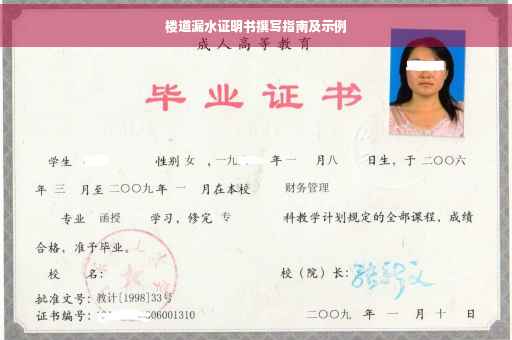 楼道漏水证明书撰写指南及示例
成人高等教育
毕业证书
学生 性别 女 ，一九 年一 月八 日生，于二〇〇六
年 三 月至二〇〇九年 一 月在本校 财务管理
专业 函授 学习，修完 专 科教学计划规定的全部课程，成绩
合格，准予毕业。
校 名： 校（院）长：
批准文号：教计[1998]33号
证书编号： 06001310 二〇〇九 年 一 月 十 日